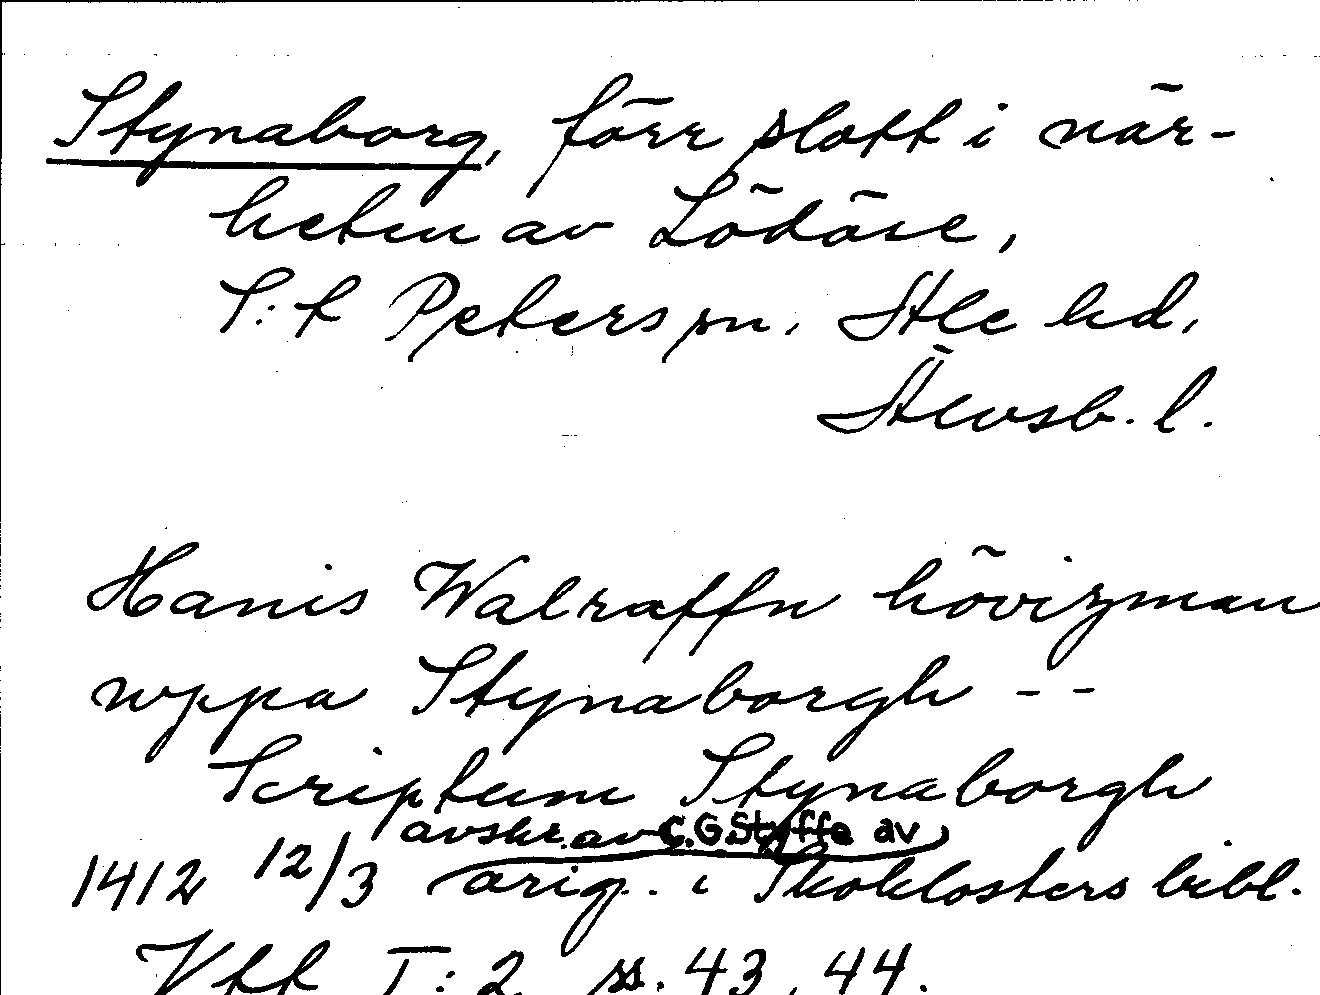 Stynaborg, förr slott i när-
heten av Lödöse,
S:t Peters sn. Ale hd,
Älvsb. l.
Hanis Walraffn hövizman
uppa Stynaborgh --
Scriptum Stynaborgh
avskr. av C.G. Styffe av
1412 12/3 orig. i Skoklosters bibl.
Vff I:2 ss. 43, 44.